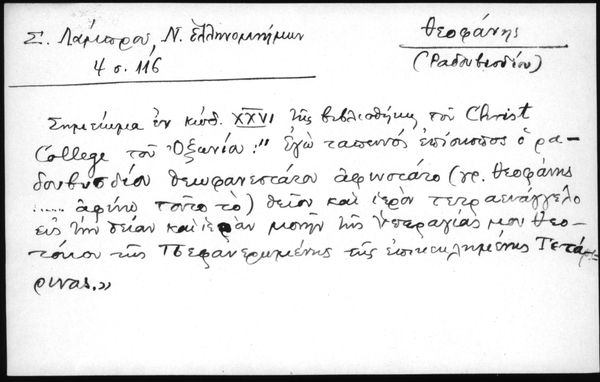 Σ. Λάμπρου, Ν. Ἑλληνομνήμων
4 σ. 116
Θεοφάνης
(Ραδοβισδίου)
Σημείωμα ἐν κώδ. XXVI τῆς βιβλιοθήκης τοῦ Christ
College τοῦ Ὀξωνία: "ἐγὼ ταπεινός ἐπίσκοπος ὁ ρα-
δουβυσδίου θεωφανεστάτου ἀφινοστάτο (γρ. Θεοφάνης
..... ἀφίνω τοῦτο τὸ) θεῖον καὶ ἱερὸν τετραευάγγελο
εἰς τὴν θείαν καὶ ἱερὰν μονὴν τῆς ὑπεραγίας μου Θεο-
τόκου τῆς Πεφανερωμένης τῆς ἐπικεκλημένης Τετά-
ρινας.»